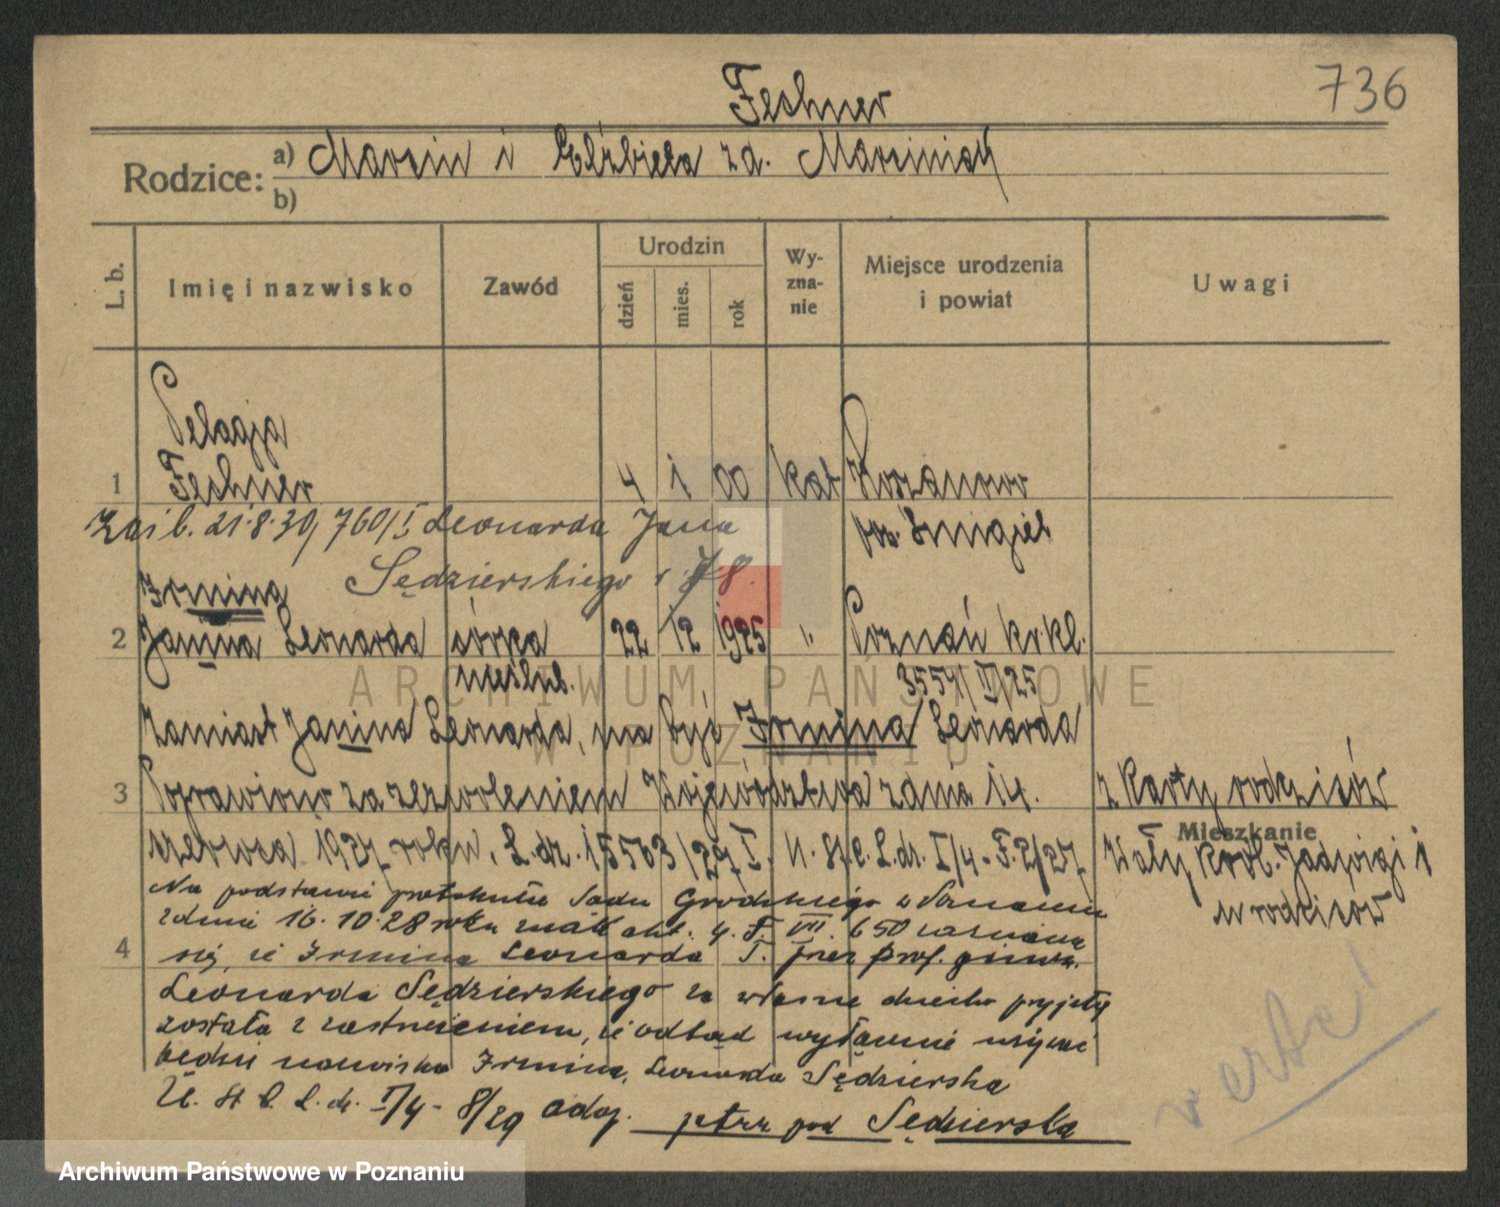 Fechner
736
Rodzice: a) Marcin i Elżbieta zd. Marciniak
b)
L. b. Imię i nazwisko Zawód Urodzin dzień mies. rok Wy-zna-nie Miejsce urodzenia i powiat Uwagi
Pelagja
1 Fechner 4 1 00 kat
21.8.30, 760/I Leonarda Jana pow. Śmigiel
Sędzierskiego r. 78.
Irmina
2 Janina Leonarda córka 22 12 1925 " Poznań
nieślub. 3554/II/25
Zamiast Janina Leonarda, ma być Irmina Leonarda
3 Poprawiono za zezwoleniem Województwa z dnia 14. z karty rodziców
czerwca 1927 roku, L. dz. 15503/27 I. U. St. C. L. dz. I/4-F.2/27
Mieszkanie
Wały Król. Jadwigi 1
u rodziców
Na podstawie protokułu Sądu Grodzkiego w Poznaniu
z dnia 16.10.28 roku 4. F. VII. 650
4 się, że Irmina Leonarda F. przez prof. gimn.
Leonarda Sędzierskiego za własne dziecko przyjętą
została z zastrzeżeniem, że odtąd wyłącznie używać
będzie nazwiska Irmina, Leonarda Sędzierska
U. St. C. L. dz. I/4-8/29 adop. patrz pod Sędzierska
verte!
ARCHIWUM PAŃSTWOWE
W POZNANIU
Archiwum Państwowe w Poznaniu